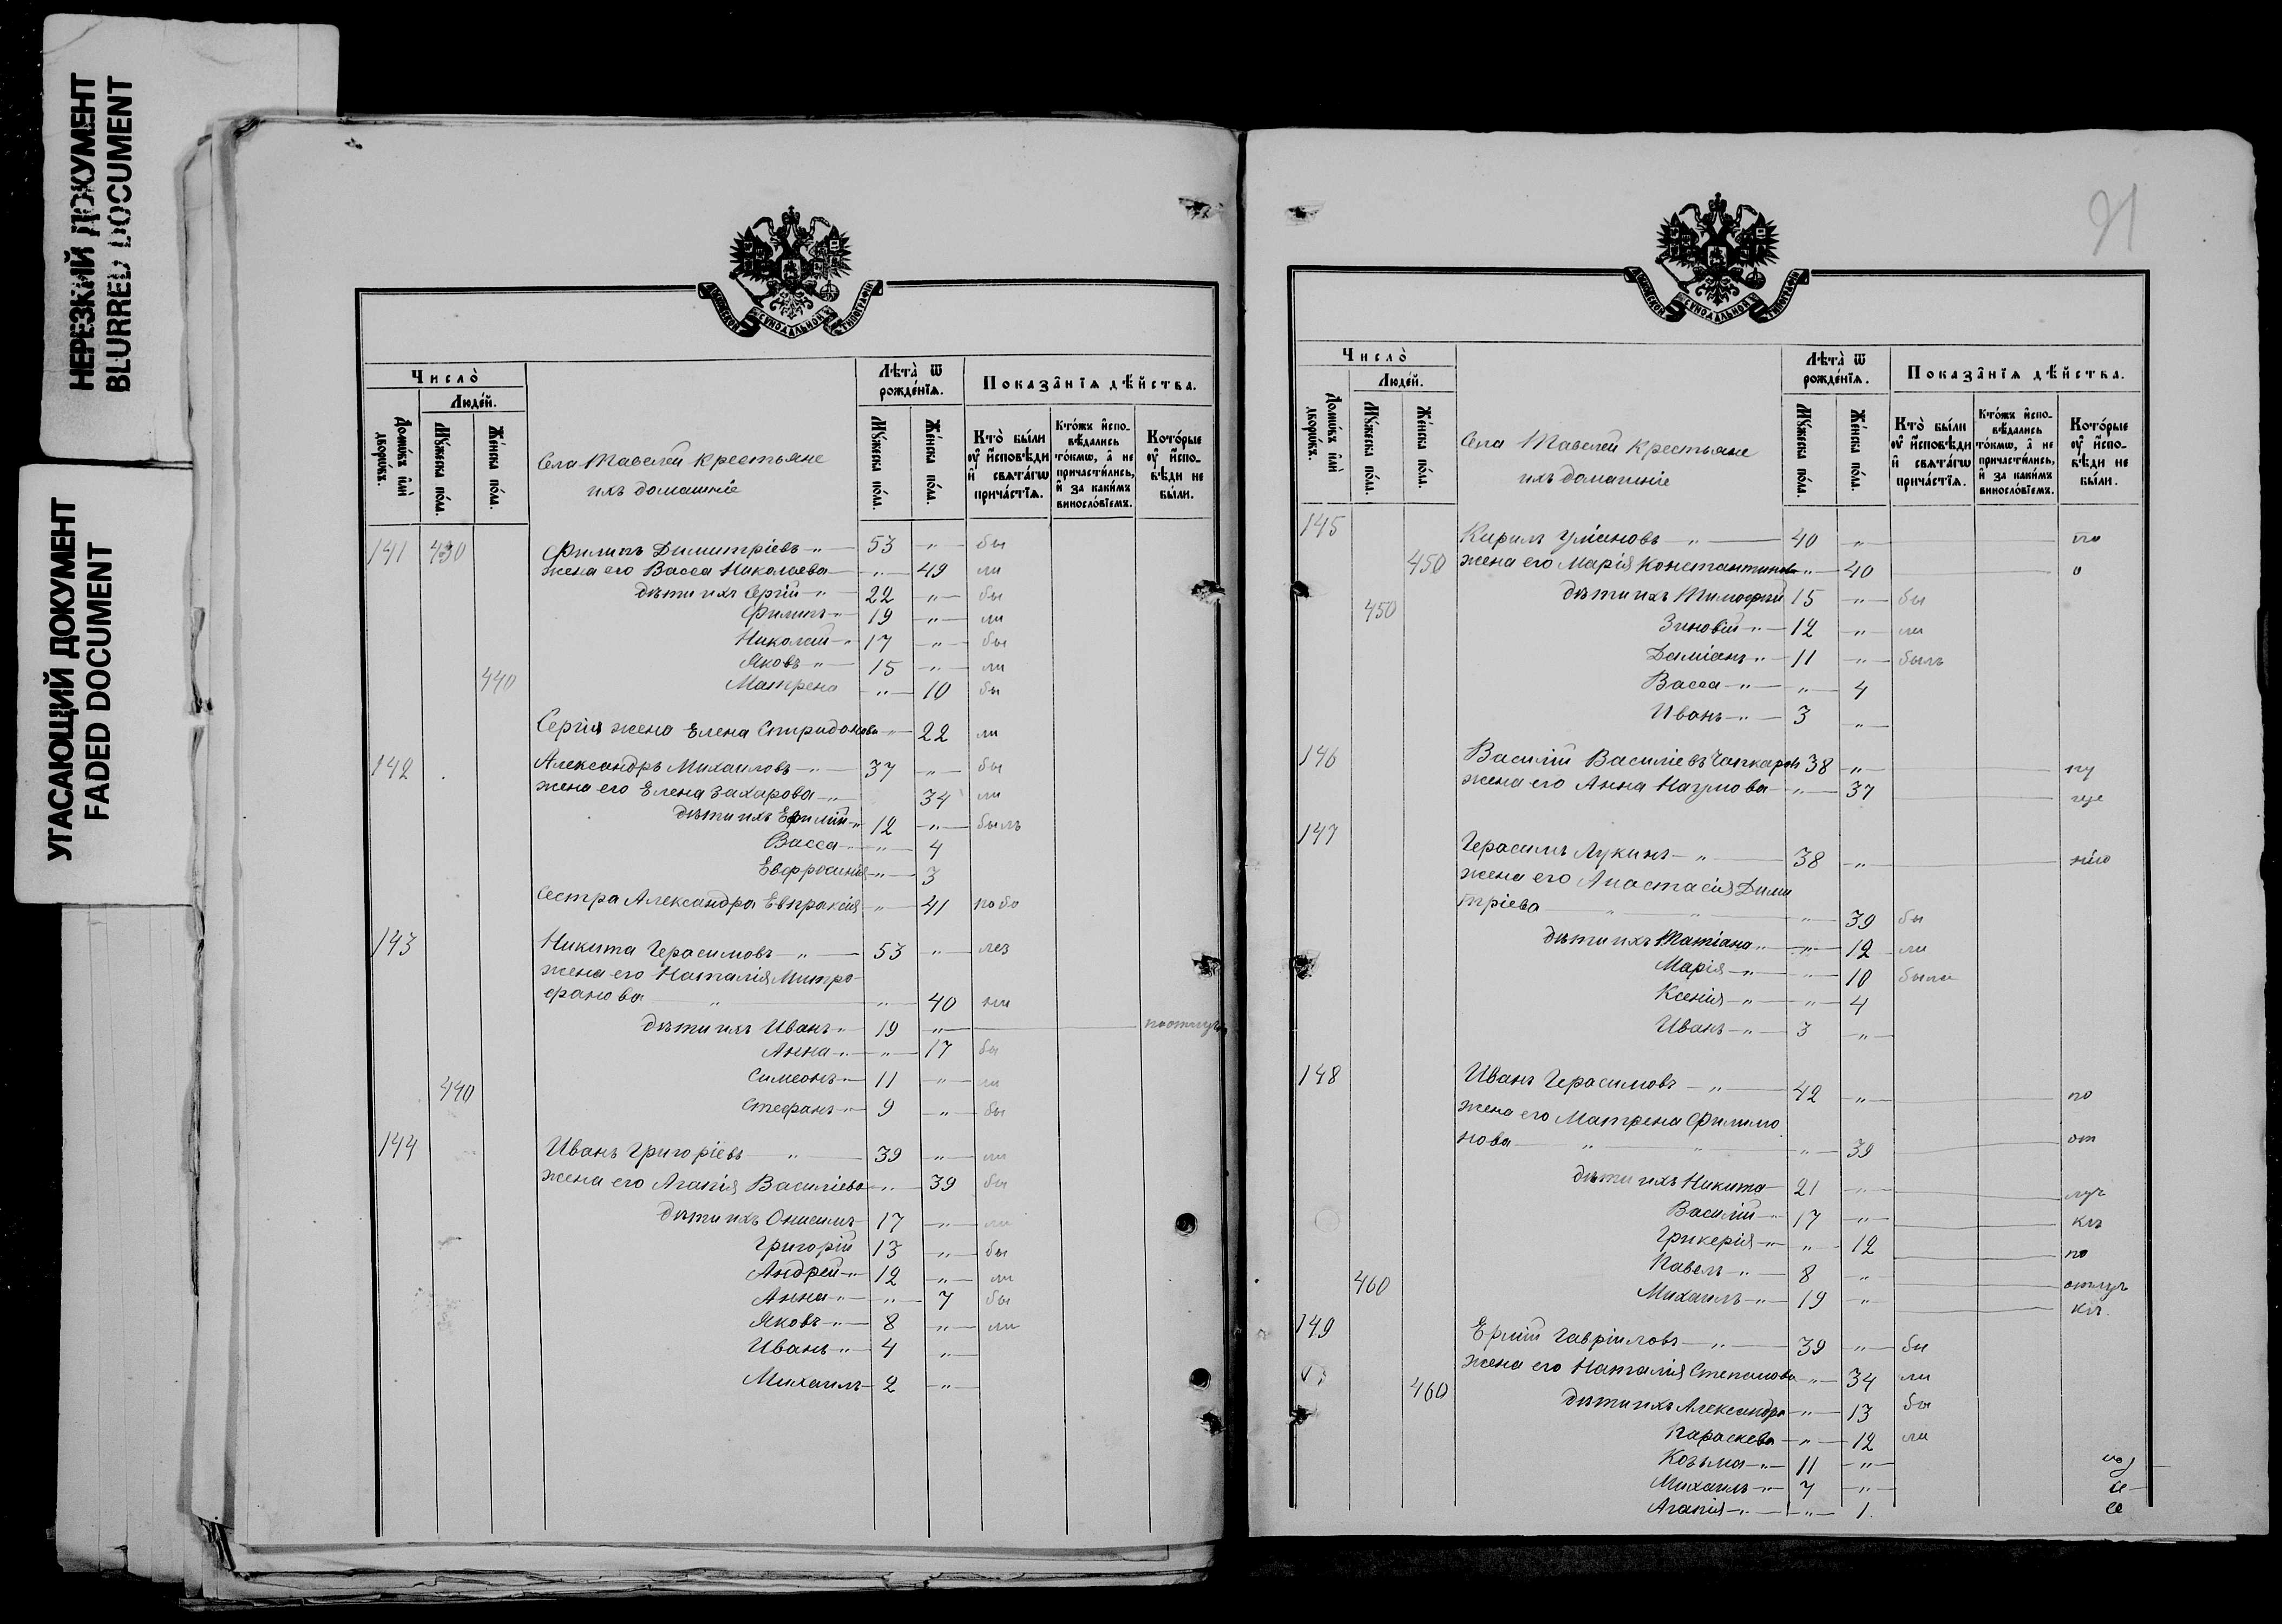 НЕРЕЗКИЙ ДОКУМЕНТ
BLURRED DOCUMENT
УГАСАЮЩИЙ ДОКУМЕНТ
FADED DOCUMENT
СѴНОДАЛЬНОЙ ТИПОГРАФІИ
Число̀
Люде́й.
Домѡ́въ и҆лѝ дворѡ́въ.
Мꙋ́жеска по́ла.
Же́нска по́ла.
Села Тавелей крестьяне
ихъ домашніе
Лѣта̀ ѿ рожде́нїѧ.
Мꙋ́жеска по́ла.
Же́нска по́ла.
Показа̑нїѧ дѣ́йства.
Кто̀ бы́ли ᲂу҆ и҆́сповѣди и҆ свѧта́гѡ прича́стїѧ.
Кто́жъ и҆спо- вѣ́дались то́кмѡ, а҆ не причасти́лись, и҆ за каки́мъ винословїемъ.
Кото́рые ᲂу҆ и҆́спо- вѣди не бы́ли.
141 430 Филипъ Димитріевъ -"- 53 -"- бы
жена его Васса Николаева -"- 49 ли
дѣти ихъ Сергій -"- 22 -"- бы
Филипъ -"- 19 -"- ли
Николай -"- 17 -"- бы
Яковъ -"- 15 -"- ли
440 Матрена -"- 10 бы
Сергія жена Елена Спиридонова -"- 22 ли
142 Александръ Михаиловъ -"- 37 -"- бы
жена его Елена Захарова -"- 34 ли
дѣти ихъ 12 -"- былъ
Васса -"- -"- 4
Евфросинія -"- 3
Сестра Александра Евпраксія -"- 41 по бо
143 Никита Герасимовъ -"- 53 -"- лез
жена его Наталія Митро-
фанова " -"- 40 ни
дѣти ихъ Иванъ -"- 19 -"-
Анна -"- -"- 17 бы
Симеонъ -"- 11 -"- ли
440 Стефанъ -"- 9 -"- бы
144 Иванъ Григоріевъ " 39 -"- ли
жена его Агапія Василіева -"- 39 бы
дѣти ихъ Онисимъ 17 -"- ли
Григорій 13 -"- бы
Андрей -"- 12 -"- ли
Анна -"- -"- 7 бы
Яковъ -"- 8 -"- ли
Иванъ -"- 4 -"-
Михаилъ 2 -"-
СѴНОДАЛЬНОЙ ТИПОГРАФІИ
91
Число̀
Люде́й.
Домѡ́въ и҆лѝ дворѡ́въ.
Мꙋ́жеска по́ла.
Же́нска по́ла.
Села Тавелей крестьяне
ихъ домашніе
Лѣта̀ ѿ рожде́нїѧ.
Мꙋ́жеска по́ла.
Же́нска по́ла.
Показа̑нїѧ дѣ́йства.
Кто̀ бы́ли ᲂу҆ и҆́сповѣди и҆ свѧта́гѡ прича́стїѧ.
Кто́жъ и҆спо- вѣ́дались то́кмѡ, а҆ не причасти́лись, и҆ за каки́мъ винословїемъ.
Кото́рые ᲂу҆ и҆́спо- вѣди не бы́ли.
145 Кирилъ Ульяновъ -"- 40 -"- по
450 жена его Марія Константинова -"- 40 о
450 дѣти ихъ Тимофей 15 -"- бы
Зиновій -"- 12 -"- ли
Даміанъ -"- 11 -"- былъ
Васса -"- -"- 4
Иванъ -"- 3 -"-
146 Василій Василіевъ 38 -"- пу
жена его Анна Наумова -"- 37 ще
147 Герасимъ Лукинъ -"- 38 -"- нію
жена его Анастасія Дими
тріева " " -"- 39 бы
дѣти ихъ Татіана -"- -"- 12 ли
Марія -"- -"- 10 были
Ксенія -"- -"- 4
Иванъ -"- 3 -"-
148 Иванъ Герасимовъ -"- 42 -"- по
жена его Матрена Филимо
нова " " -"- 39 от
дѣти ихъ Никита 21 -"- луч
Василій -"- 17 -"- кѣ
Гликерія -"- -"- 12 по
Павелъ -"- 8 -"- отлуч
460 Михаилъ -"- 19 -"- кѣ.
149 Ермій Гавріиловъ -"- 39 -"- бы
жена его Наталія Степанова -"- 34 ли
460 дѣти ихъ Александра -"- 13 бы
Параскева -"- 12 ли
Козьма -"- 11 -"-
Михаилъ -"- 7 -"-
Агапія -"- -"- 1.